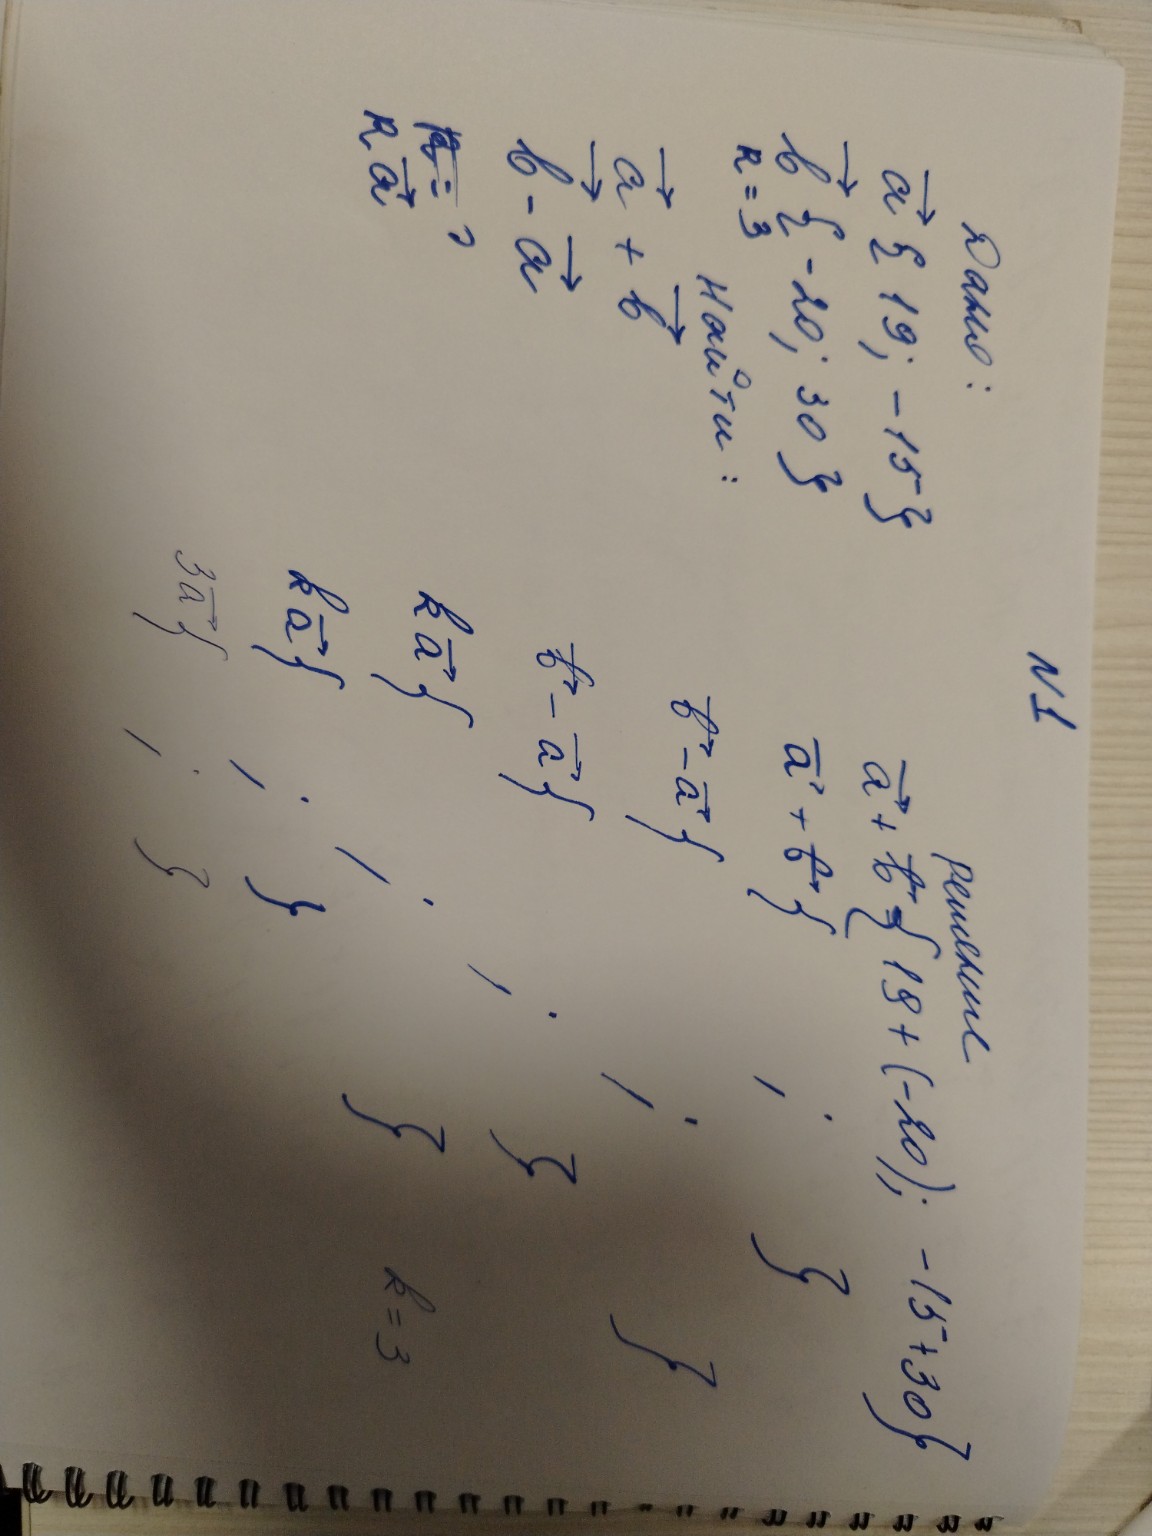 N1
Дано:
a⃗ { 19; -15}
b⃗ { -20; 30}
k = 3
Найти:
a⃗ + b⃗
b⃗ - a⃗
k a⃗
решение
a⃗ + b⃗ { 19 + (-20); -15 + 30}
a⃗ + b⃗ { ; }
b⃗ - a⃗ { ; }
b⃗ - a⃗ { ; }
k a⃗ { ; } k = 3
k a⃗ { ; }
3a⃗ { ; }